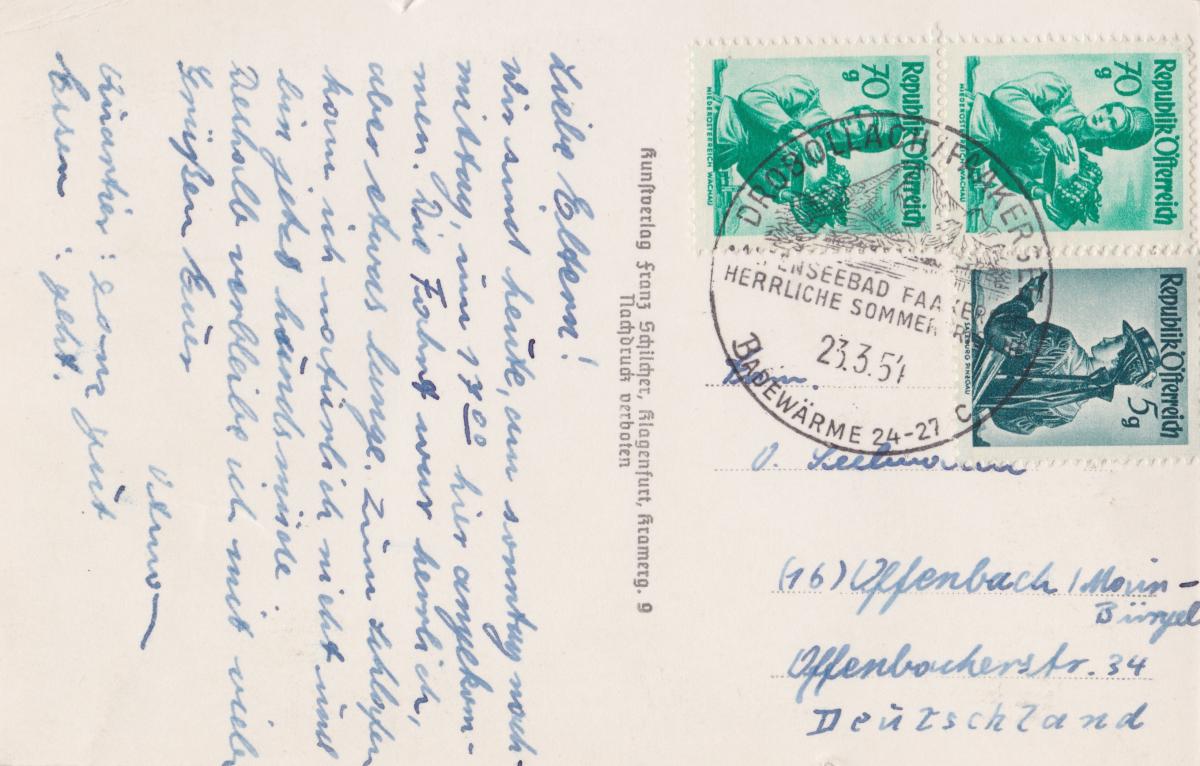 Liebe Eltern!
Wir sind heute, am sonntag nach-
mittag, um 17 00 hier angekom-
men. Die Fahrt war herrlich,
aber etwas lange. Zum schlafen
kam ich natürlich nicht und
bin jetzt hundsmüde
Deshalb verbleibe ich mit vielen
Grüßen Euer
Quartier: ganz gut
Essen: geht.
Kunstverlag Franz Schilcher, Klagenfurt, Kramerg. 9
Nachdruck verboten
Republik Österreich
70 g
NIEDERÖSTERREICH WACHAU
Republik Österreich
70 g
NIEDERÖSTERREICH WACHAU
Republik Österreich
5 g
SALZBURG PINZGAU
DROBOLLACH/FAAKERSEE
ALPENSEEBAD FAAKERSEE
HERRLICHE SOMMER
23.3.54
BADEWÄRME 24-27 C
Fam.
O. Seelmann
(16) Offenbach / Main-
Bürgel
Offenbacherstr. 34
Deutschland